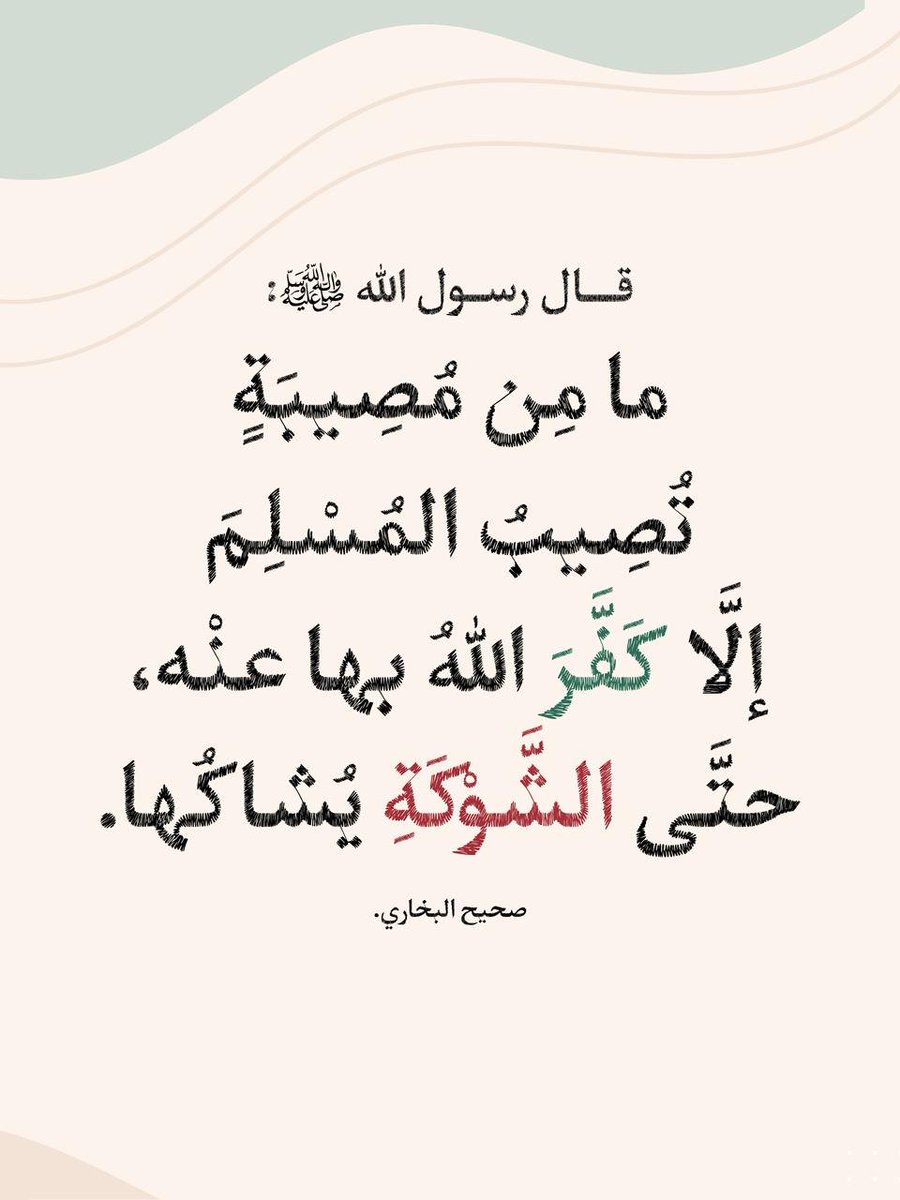 قـــال رســول الله ﷺ:
ما مِن مُصِيبَةٍ
تُصِيبُ المُسْلِمَ
إلَّا كَفَّرَ اللهُ بها عنْه،
حتَّى الشَّوْكَةِ يُشاكُها.
صحيح البخاري.